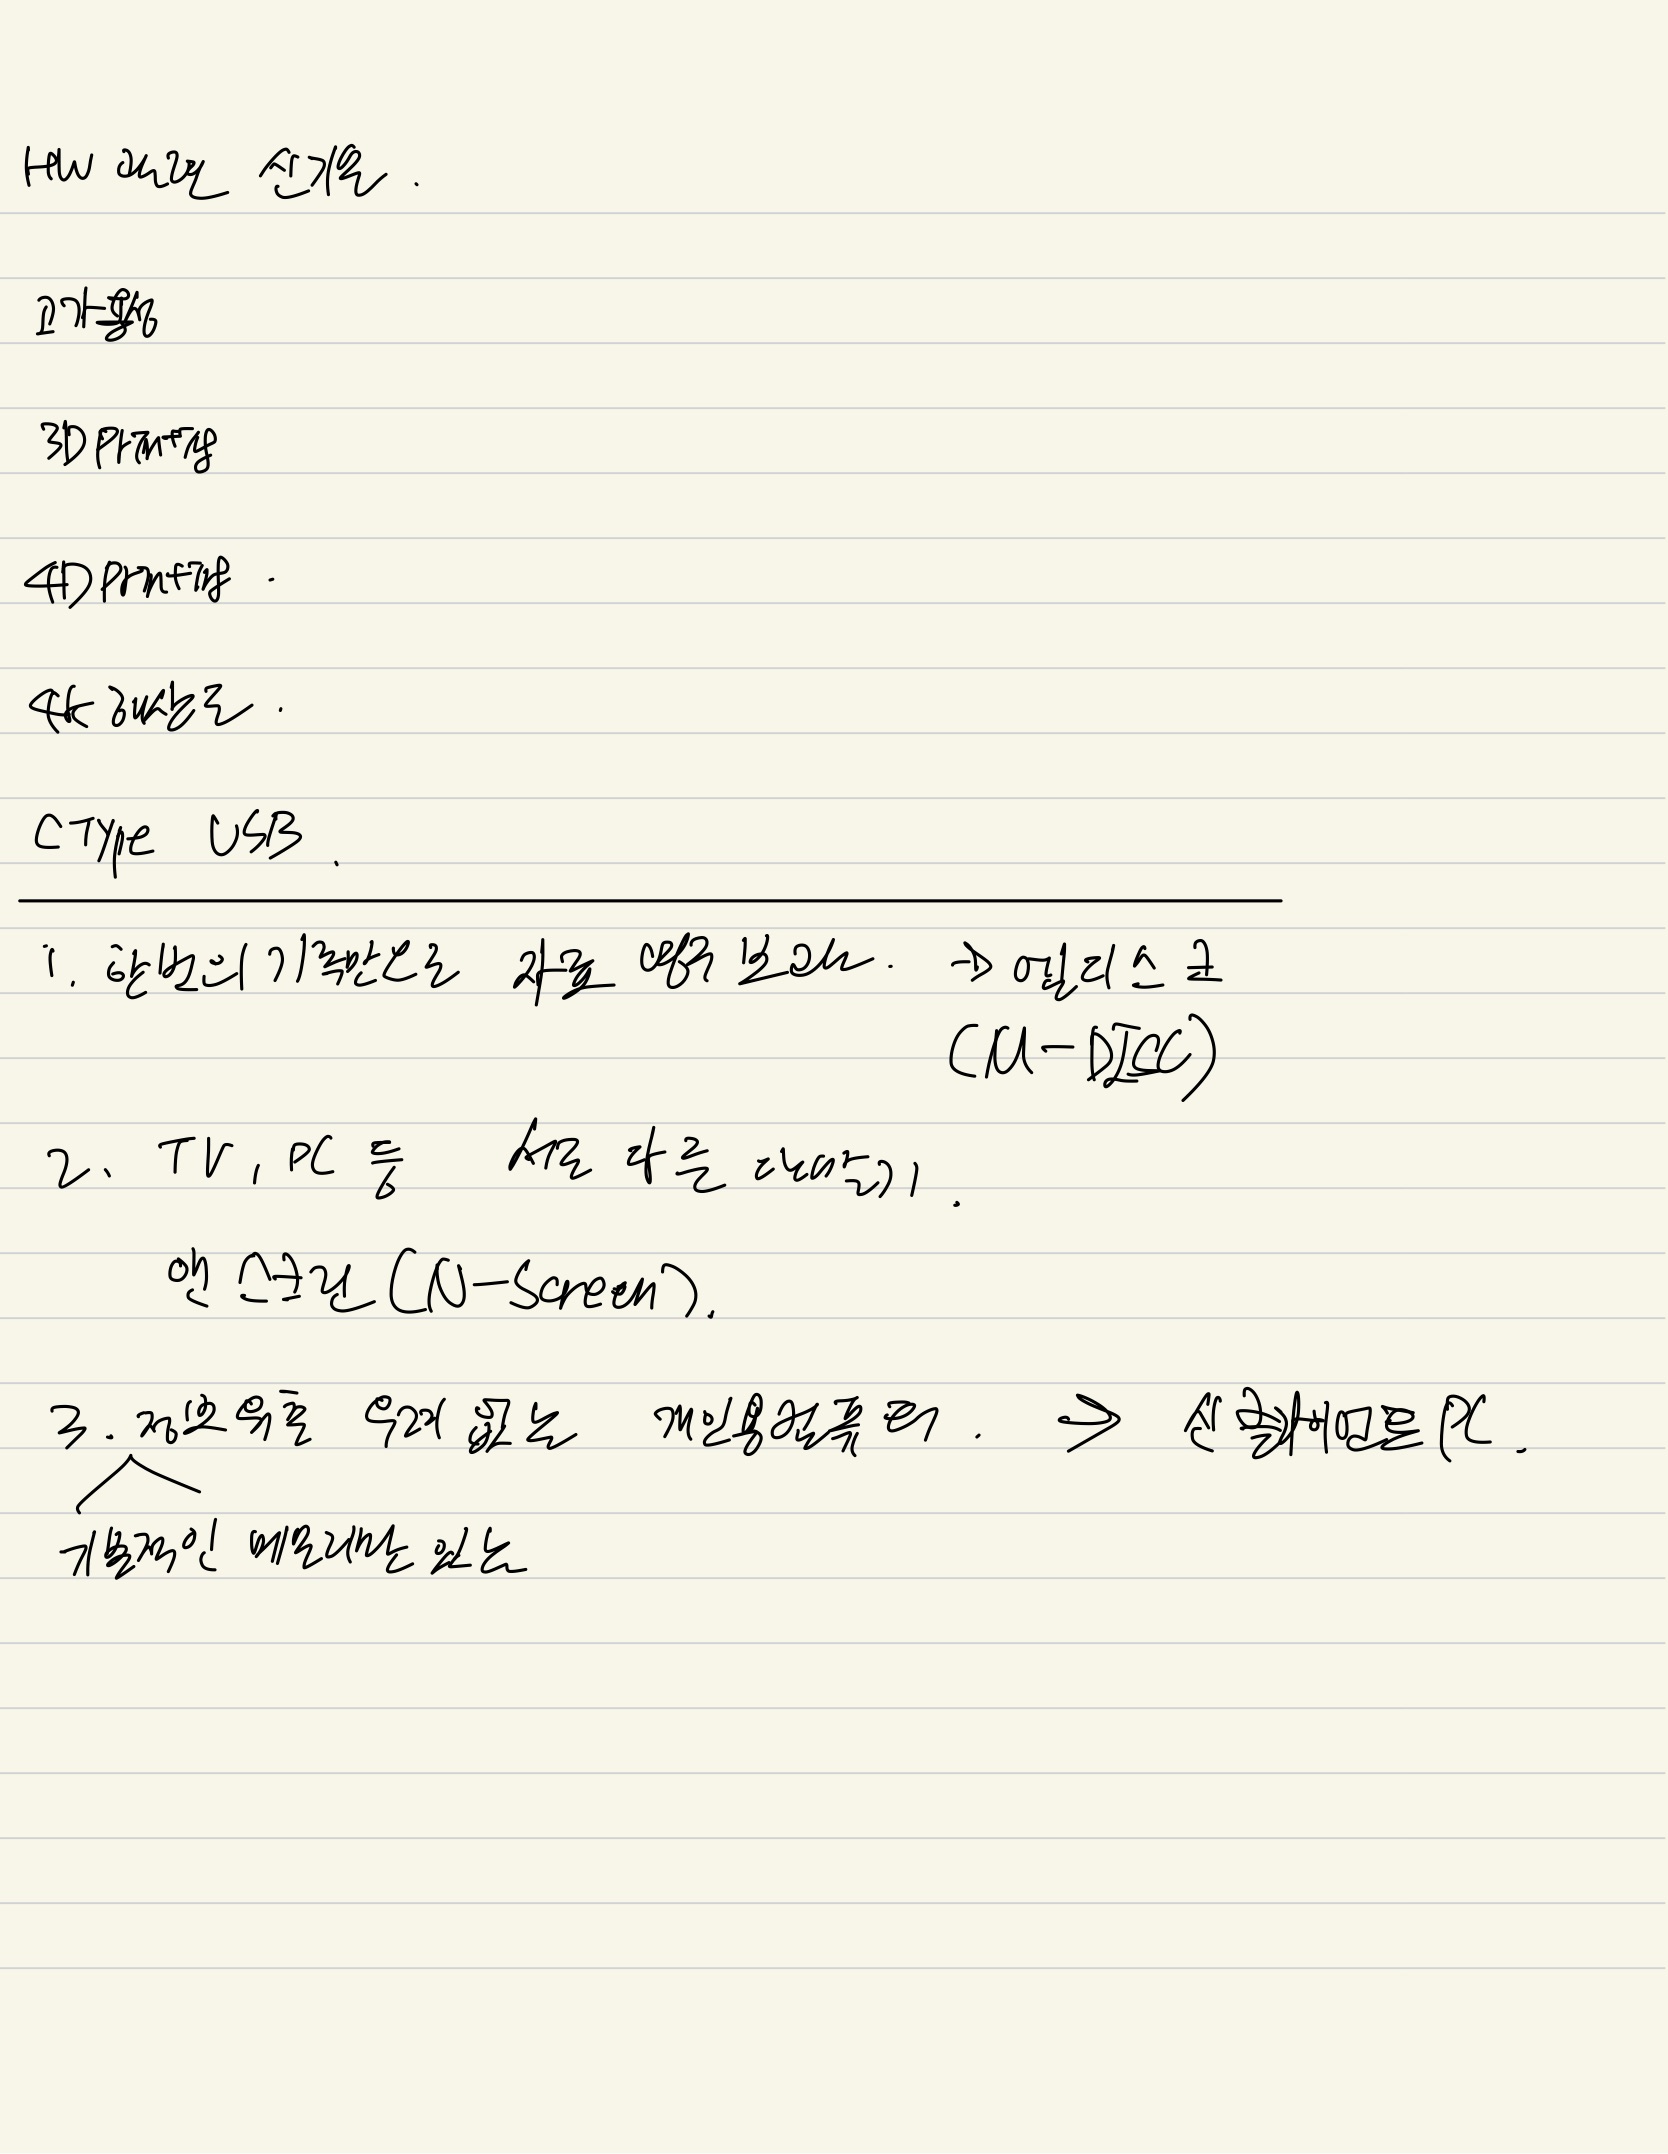 HW 관련 신기술.
고가용성
3D printing
4D printing.
4K 해상도.
C Type USB.
1. 한번의 기록만으로 자료 영구 보관. → 엠디스크
(M-DISC)
2. TV, PC 등 서로 다른 단말기.
앤 스크린 (N-Screen).
3. 정보유출 우려 없는 개인용컴퓨터. → 신클라이언트 PC.
기본적인 메모리만 있는